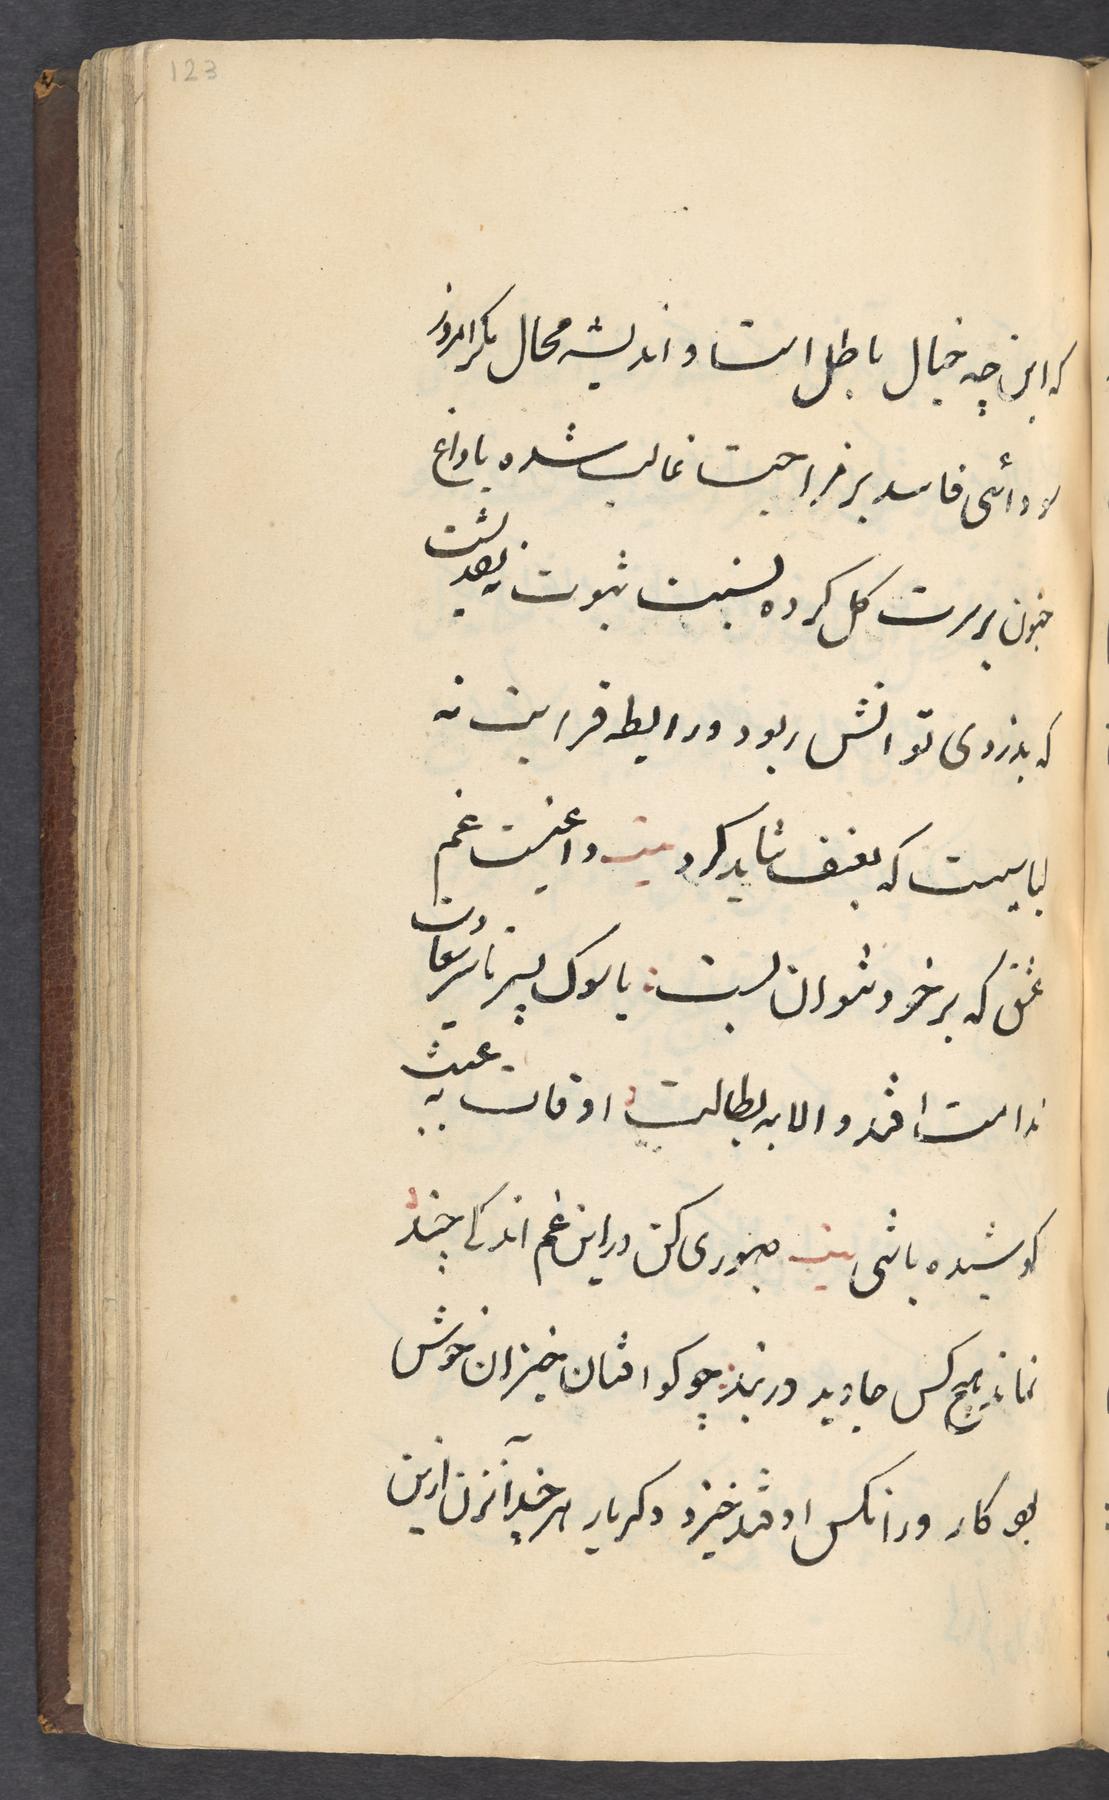 123
که این چه خیال باطل است و اندیشه محال مگر امروز
سودائی فاسد بر مزاجت غالب شده یا داغ
جنون بر سرت گل کرده نسبت نبوت نه عهدیست
که بدزدی توانش ربود و رابطه قرابت نه
لباسیست که بعنف شاید کرد بیت داغیست غم
عشق که بر خود نتوان بست یا سوک پسر تا سر
ندامت افتد و الا به بطالت اوقات به عبث
کوشیده باشی بیت صبوری کن درین غم اندکی چند
نماند هیچ کس جاوید در بند چو کو افتان خیزان خوش
بود کار ور انکس اوفتد خیزد دگر بار هر چند آنزن ازین